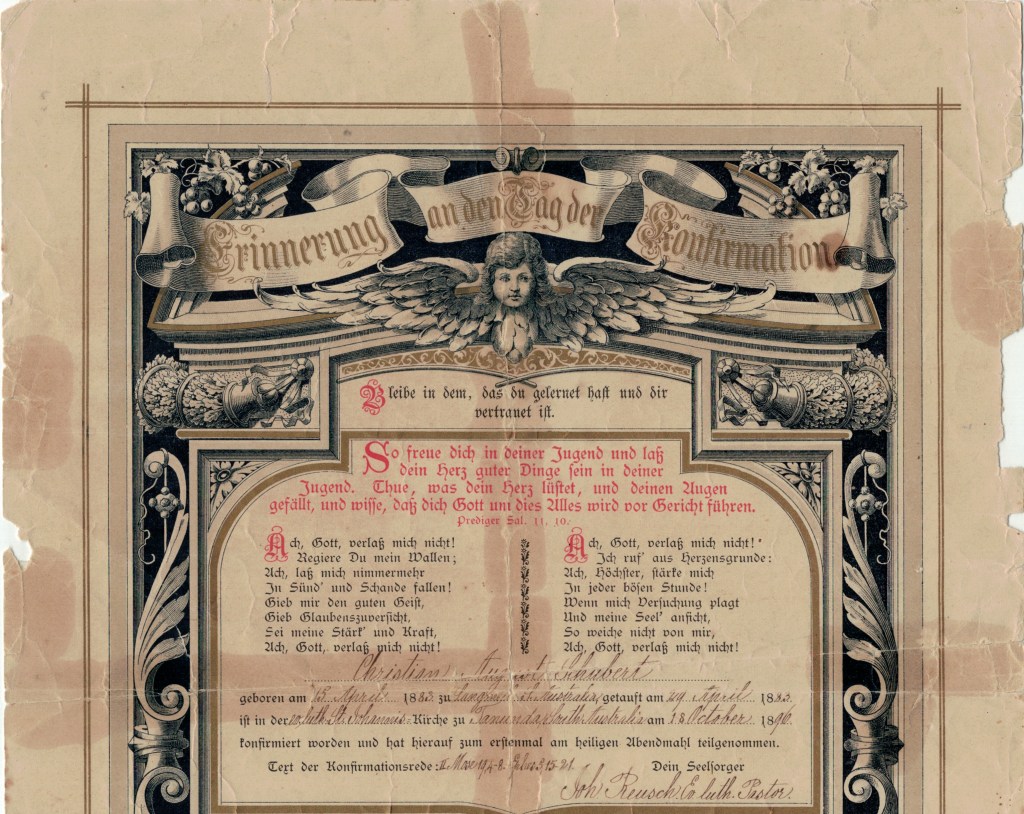 Erinnerung an den Tag der Konfirmation
Bleibe in dem, das du gelernet hast und dir
vertrauet ist.
So freue dich in deiner Jugend und laß
dein Herz guter Dinge sein in deiner
Jugend. Thue, was dein Herz lüstet, und deinen Augen
gefällt, und wisse, daß dich Gott um dies Alles wird vor Gericht führen.
Prediger Sal. 11, 10.
Ach, Gott, verlaß mich nicht!
Regiere Du mein Wallen;
Ach, laß mich nimmermehr
In Sünd' und Schande fallen!
Gieb mir den guten Geist,
Gieb Glaubenszuversicht,
Sei meine Stärk' und Kraft,
Ach, Gott, verlaß mich nicht!
Ach, Gott, verlaß mich nicht!
Ich ruf' aus Herzensgrunde:
Ach, Höchster, stärke mich
In jeder bösen Stunde!
Wenn mich Versuchung plagt
Und meine Seel' anficht,
So weiche nicht von mir,
Ach, Gott, verlaß mich nicht!
Christian August Schubert
geboren am 15 April 1883 zu Australia, getauft am 29 April 1883
ist in der St. Johannis-Kirche zu Tanunda Australia am 18 October 1896
konfirmiert worden und hat hierauf zum erstenmal am heiligen Abendmahl teilgenommen.
Text der Konfirmationsrede: II Mose 19, Dein Seelsorger
Joh Reusch Ev luth. Pastor.